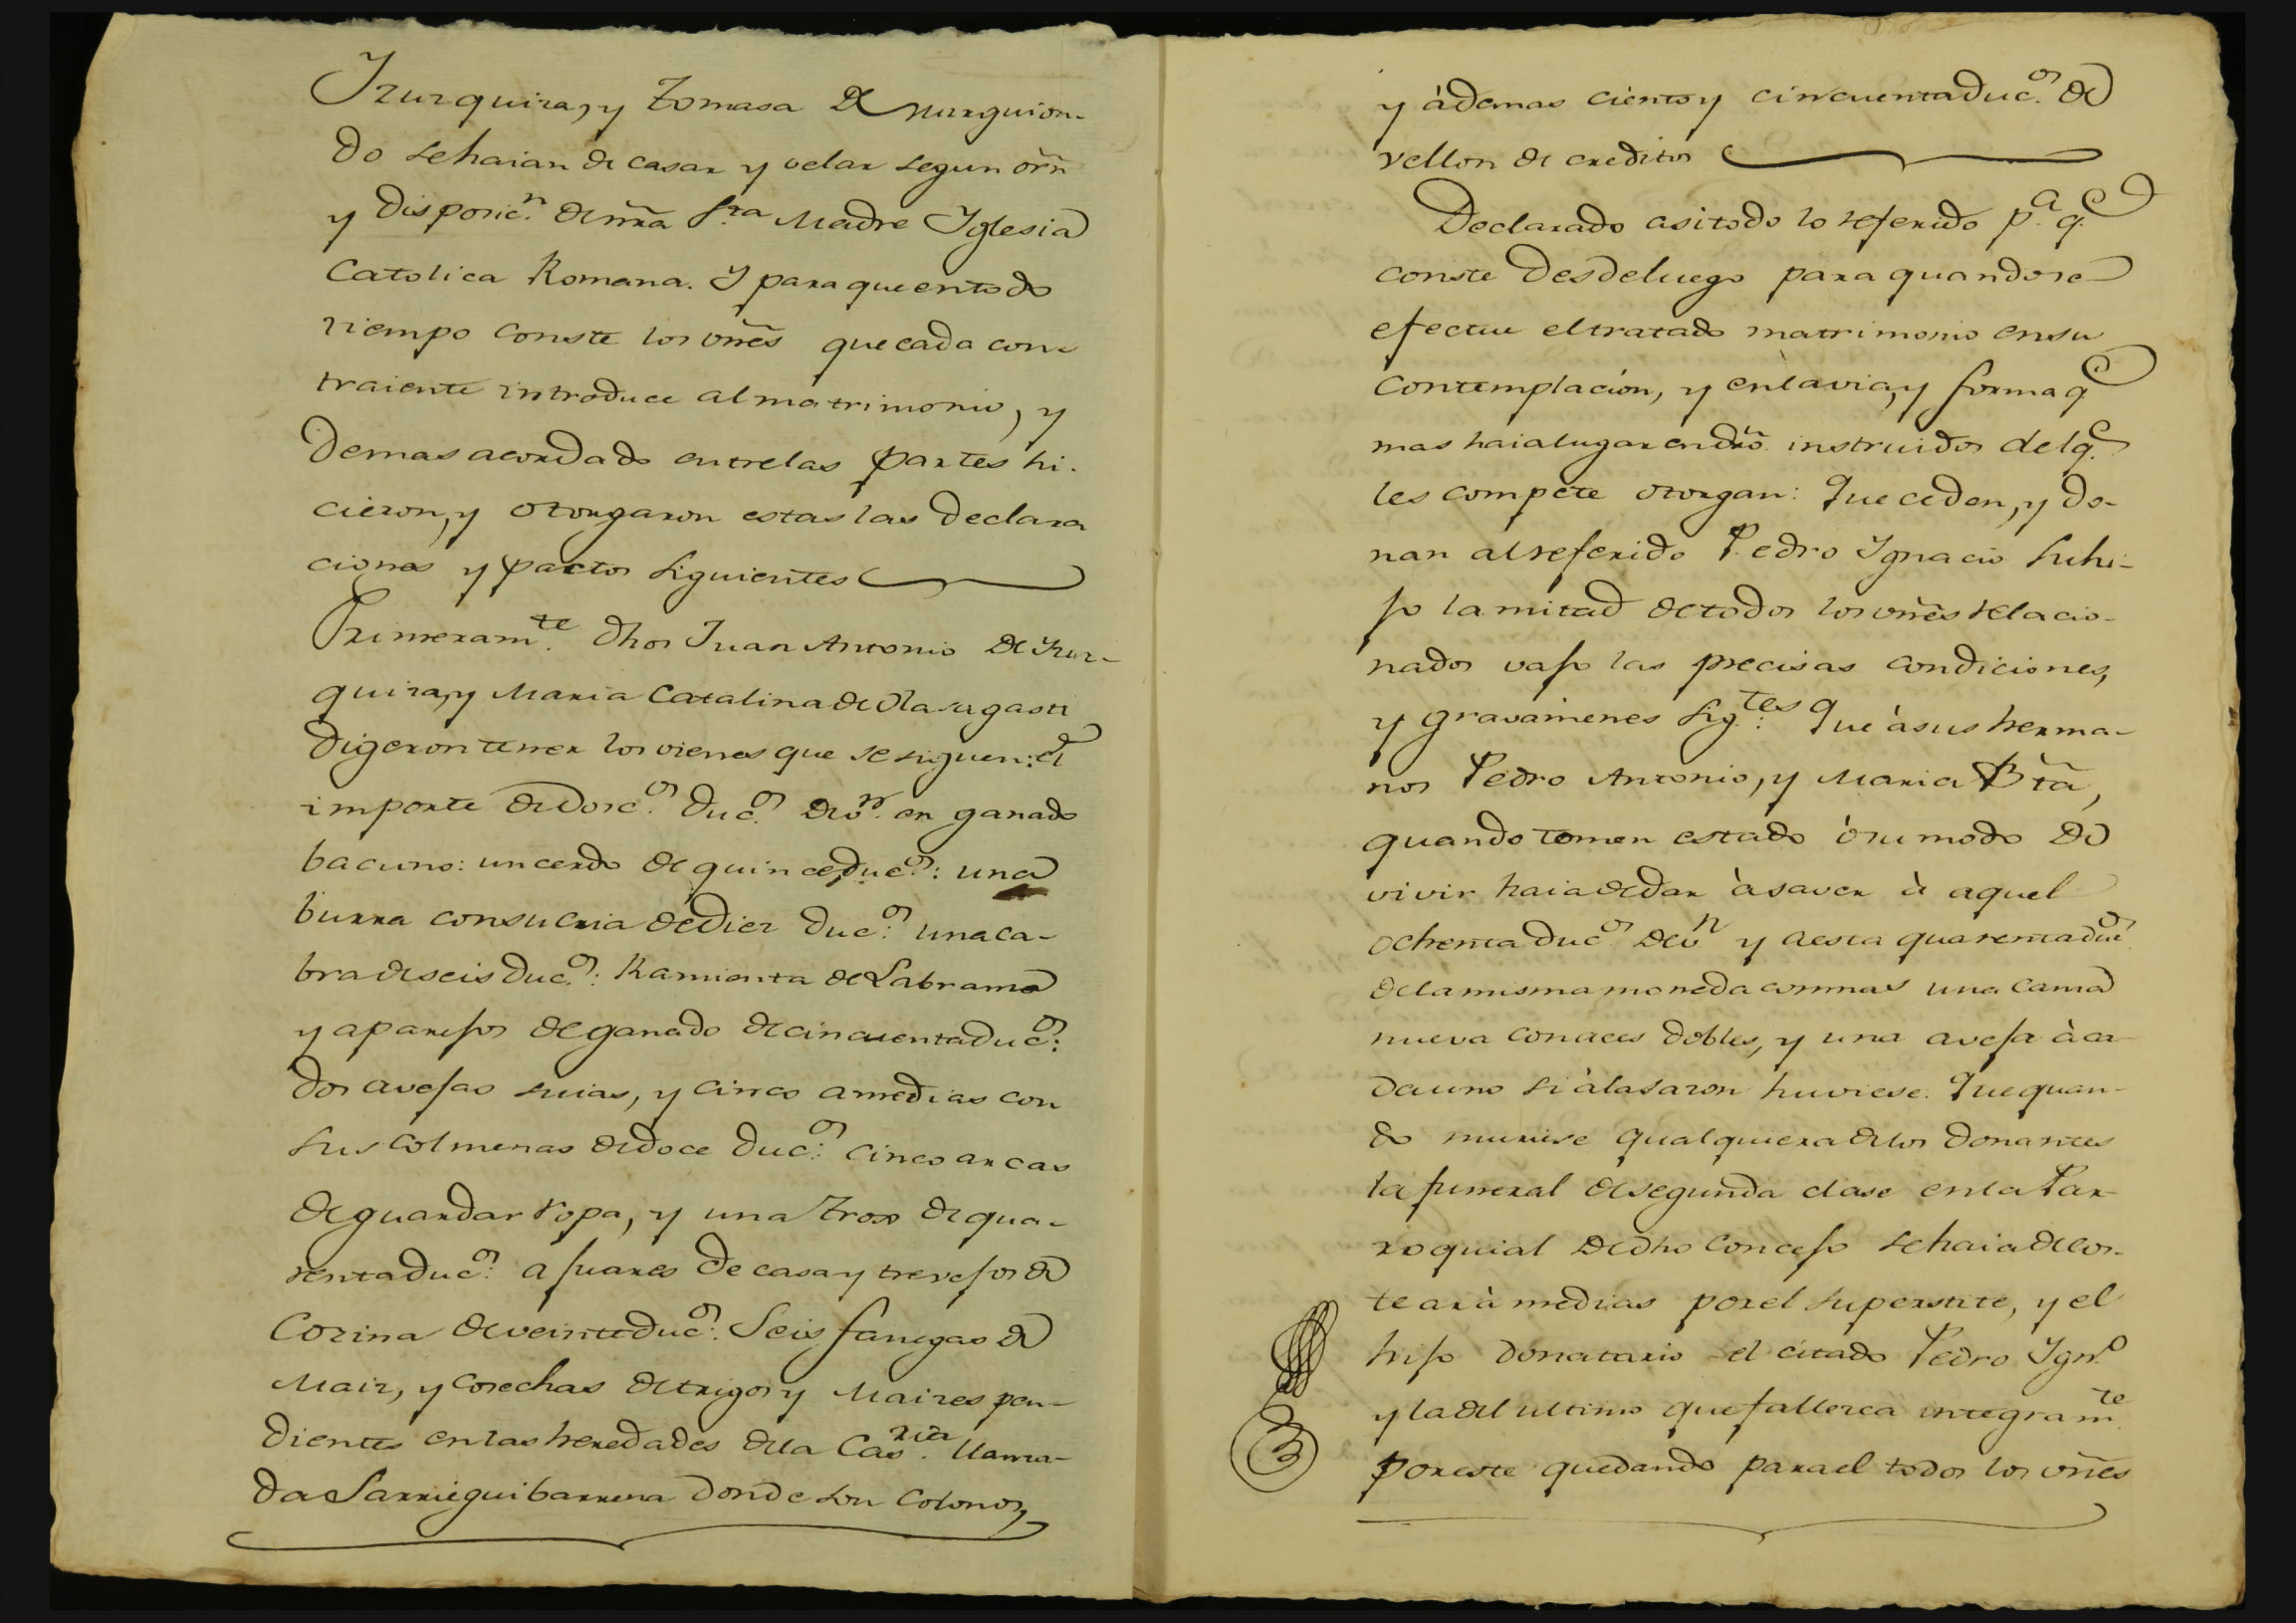 Irurquiza, y Tomasa de Murguion-
do se haian de casar y velar segun orn̄
y disposic.n de nr̄a S.ta Madre Iglesia
Catolica Romana. Y para que en todo
tiempo conste los vn̄es que cada con-
traiente introduce al matrimonio, y
demas acordado entre las partes hi-
cieron, y otorgaron estas las declara
ciones y pactos siguientes
Primeram.te dhos Juan Antonio de Irur-
quiza, y Maria Catalina de Olasagasti
digeron tener los vienes que se siguen: el
importe de dosc.s duc.s de v.n en ganado
bacuno: un cerdo de quince duc.s: una
burra con su cria de diez duc.s: una ca-
bra de seis duc.s: Ramienta de Labranza
y aparejos de ganado de cincuenta duc.s:
dos avejas suias, y cinco a medias con
sus colmenas de doce duc.s: cinco arcas
de guardar ropa, y una trox de qua-
renta duc.s: ajuares de casa y trevejos de
Cozina de veinte duc.s: Seis fanegas de
Maiz, y cosechas de trigos y Maizes pen-
dientes en las heredades de la Cas.ria llama-
da Sarrieguibarrena donde son colonos,
y àdemas ciento y cincuenta duc.s de
vellon de creditos
Declarado asi todo lo referido p.a q.e
conste desde luego para quando se
efectue el tratado matrimonio en su
contemplacion, y en la via, y forma q.e
mas haia lugar en dr̄o. instruidos del q.e
les compete otorgan: Que ceden, y do-
nan al referido Pedro Ignacio su hi-
jo la mitad de todos los vn̄es relacio-
nados vajo las precisas condiciones,
y gravamenes sig.tes: Que à sus herma-
nos Pedro Antonio, y Maria Btā,
quando tomen estado ò su modo de
vivir haia de dar à saver à aquel
ochenta duc.s de v.n y a esta quarenta duc.s
de la misma moneda con mas una cama
nueva con aces dobles, y una aveja à ca-
da uno si à la sazon huviese. Que quan-
do muriese qualquiera de los donantes
la funeral de segunda clase en la Par-
roquial de dho Concejo se haia de cos-
tear à medias por el superstite, y el
hijo donatario el citado Pedro Ign.o
y la del ultimo que fallezca integram.te
por este quedando para el todos los vn̄es